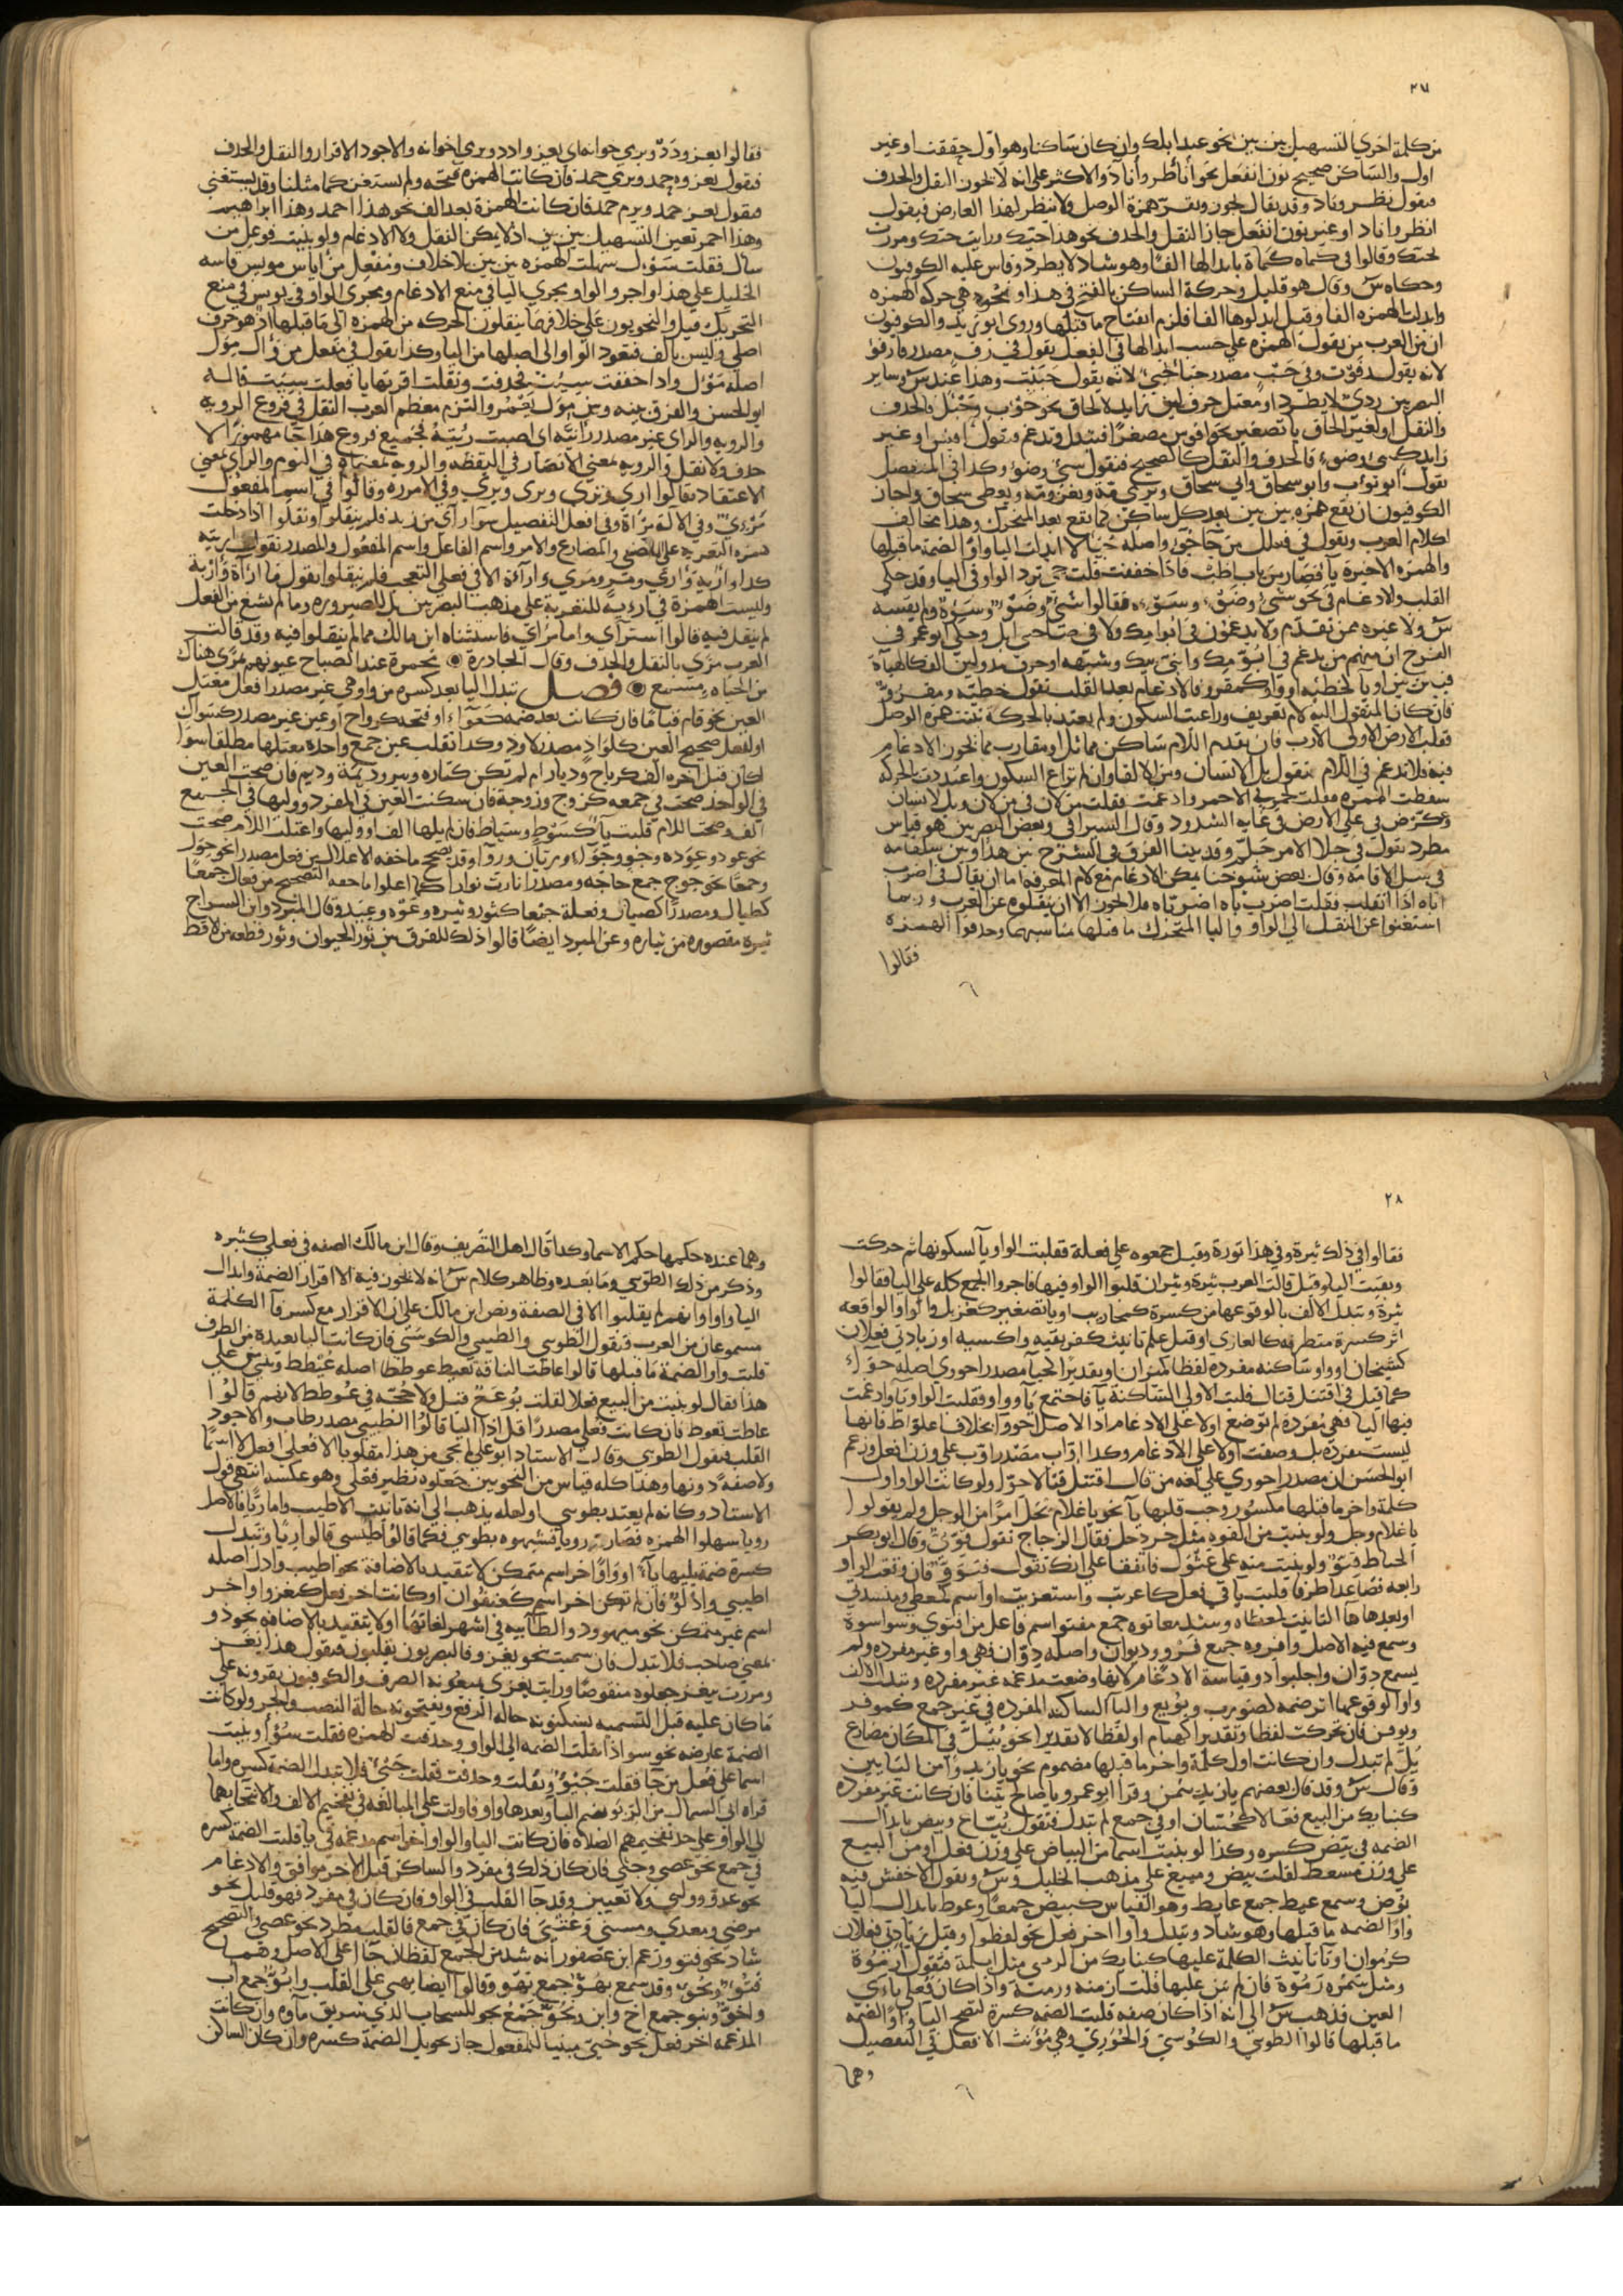 ٢٧
من كلمة اخري التسهيل بين بين نحو عبد ابلك وان كان ساكنا وهو اول حققت او غير
اول والساكن صحيح نون انفعل نحو أنأطر وأنآد والاكثر على انه لا يجوز النقل والحذف
فيقول نطر وناد وقد يقال يجوز وتقر همزة الوصل ولا ينظر لهذا العارض فيقول
انطر واناد او غير نون انفعل جاز النقل والحذف نحو هذا خبك ورايت خبك ومررت
بخبك وقالوا في كماه كماة بابدالها الفا وهو شاذ لا يطرد وقاس عليه الكوفيون
وحكاه س وقال هو قليل وحركة الساكن بالفتح في هذا ونحوه هي حركة الهمزه
وابدلت الهمزه الفا وقيل ابدلوها الفا فلزم انفتاح ما قبلها وروى ابو زيد والكوفيون
ان من العرب من يقول الهمزه علي حسب ابدالها في الفعل يقول في رفء مصدر رفا رفو
لانه يقول رفوت وفي خبء مصدر خبا خبي لانه يقول خبيت وهذا عند س وساير
البصريين ردي لا يطرد او معتل حرف لين زايد لالحاق نحو حوأب وجيل فالحذف
والنقل او لغير الحاق يا تصغير نحو افوس مصغرا فتبدل وتدغم فيقول افيس او غير
زايد كشي وضوء فالحذف والنقل كالصحيح فنقول شي وضو وكذا في المنفصل
يقول ابو يوب وابو سحاق وابي سحاق ويرمي مه ويغزو مه ويعطي سحاق واجاز
الكوفيون ان يقع همزه بين بين بعد كل ساكن كما يقع بعد المتحرك وهذا مخالف
لكلام العرب وتقول في فعلل من جا جوء واصله جيا لا ابدلت اليا واوا لضمة ما قبلها
والهمزه الاخيرة يا فصار من باب اظب فاذا خففت قلت جي ترد الواو في اليا وقد حكي
القلب والادغام في نحو شيء وضوء وسوء فقالوا شي وضو وسو ولم يقسه
س ولا غيره ممن تقدم ولا يدغمون في ابو امك ولا في صاحبي ابل وحكي ابو عمر في
الفرخ ان منهم من يدغم في ابو مك وابني بيك وشبهه او حرف مد ولين الف كالهباة
فبين بين او يا كخطيه او واو كمقرو فالادغام بعد القلب تقول خطيه ومقرو
فان كان المنقول اليه لام تعريف وراعيت السكون ولم يعتد بالحركة ثبتت همزة الوصل
فقلت الارض الاولي الارب فان تقدم اللام ساكن مماثل او مقارب مما يجوز الادغام
فيه فلا تدغم في اللام تقول بل الانسان ومن الالقا وان لم تراع السكون واعتددت بالحركة
سقطت الهمزه فقلت لحمر في الاحمر وادغمت فقلت من لان في من لان وبل لانسان
وعكرض في علي الارض في غاية الشذوذ وقال السيرافي وبعض البصريين هو قياس
مطرد تقول في جلا الامر جلمر وقد بينا الفرق في الشرح بين هذا وبين سلقامه
في سل الاقامه وقال بعض شيوخنا يمكن الادغام مع لام المعرفه اما ان يقال في اضرب
اباه اذا انقلب فقلت اضرب باه اضر باه فلا يجوز الا ان ينقلوه عن العرب وربما
استغنوا عن النقل الي الواو واليا المتحرك ما قبلها مناسبهما وحذفوا الهمزه
فقالوا
فقالوا يعز ودد ويري خوانه اي يعز وادد ويري اخوانه والاجود الاقرار والنقل والحذف
فيقول يغزو حمد ويرمي حمد فان كانت الهمزه فتحه ولم يستغن كما مثلنا وقد يستغني
فيقول يعز حمد ويرم حمد فان كانت الهمزة بعد الف نحو هذا احمد وهذا ابراهيم
وهذا احمر تعين التسهيل بين بين اذ لا يمكن النقل ولا الادغام ولو بنيت فوعل من
سال فقلت سوءل سهلت الهمزه بين بين بلا خلاف ومفعل من اياس مويس قاسه
الخليل علي هذا واجرو الواو مجري اليا في منع الادغام ومجري الواو في بويس في منع
التحريك قيل والنحويون علي خلافهما ينقلون الحركه من الهمزه الي ما قبلها اذ هو حرف
اصلي وليس بالف فتعود الواو الي اصلها من اليا وكذا يقول في مفعل من وأل موئل
اصله مؤل واذا خففت سيئت فحذفت ونقلت اقررتها يا فعلت سييت قاله
ابو الحسن والفرق بينه وبين مول يعمر والتزم معظم العرب النقل في فروع الرويه
والرويه والراي غير مصدر رايته اي اصبت ريته فجميع فروع هذا جا مهموزا لا
حذف ولا نقل والرويه لمعني الابصار في اليقظه والرويا لمعناه في النوم والراي لمعني
الاعتقاد فقالوا اري وتري ويري ونري وفي الامر ره وقالوا في اسم المفعول
مروي وفي الالة مراة وفي افعل التفضيل هو ارأي من زيد فلم ينقلوا ونقلوا اذا دخلت
همزه التعديه علي الماضي والمضارع والامر واسم الفاعل واسم المفعول والمصدر تقول اريته
كذا واريه واري ومر ومري واراءة الا في فعلي التعجب فلم ينقلوا يقول ما ارآه وارء به
وليست الهمزة في ارء به للتعدية علي مذهب البصريين بل للصيروره وما لم يشع من الفعل
لم ينقل فيه قالوا استرآي واما مرآي فاستثناه ابن مالك مما لم ينقلوا فيه وقد قالت
العرب مري بالنقل والحذف وقال الحادرة ۞ محمرة عند الصباح عيونهم بمري هناك
من الحياه ومسمع ۞ فصل تبدل اليا بعد كسره من واو هي عين مصدر افعل معتل
العين نحو قام قياما فان كانت بعد ضمه كعواء او فتحه كرواح او عين غير مصدر كسوان
او لفعل صحيح العين كلواذ مصدر لاوذ وكذا تقلب عين جمع واحده معتلها مطلقا سوا
اكان قبل اخره الف كرياح وديار ام لم تكن كتاره وتير وديمة وديم فان صحت العين
في الواحد صحت في جمعه كزوج وزوجة فان سكنت العين في المفرد ووليها في الجميع
الف وصحت اللام قلبت يا كسوط وسياط فان لم يلها الف او وليها واعتلت اللام صحت
نحو عود وعوده وجو وجواء وريان ورواء وقد يصحح ما حقه الاعلال من فعل مصدرا نحو حول
وجمعا نحو حوج جمع حاجه ومصدرا نارت نوارا كما اعلوا ما حقه التصحيح من فعال جمعا
كطيال ومصدرا كصيان وفعلة جمعا كثور وثيره وعوه وعيه وقال المبرد وابن السراج
ثيرة مقصوره من ثياره وعن المبرد ايضا قالوا ذلك للفرق بين ثور الحيوان وثور قطعه من الاقط
٢٨
فقالوا في ذلك ثيرة وفي هذا ثورة وقيل جمعوه علي فعلة فقلبت الواو يا لسكونها ثم حركت
وبقيت اليا وقيل قالت العرب ثيرة وثيران قلبوا الواو فيها فاجروا الجمع كله علي اليا فقالوا
ثيرة وتبدل الالف يا لوقوعها من كسرة كمحاريب او يا تصغير كغزيل والواو الواقعه
اثر كسرة متطرفه كالغازي او قبل علم تانيث كعريقيه واكسيه او زيادتي فعلان
كشجيان او واو ساكنه مفرده لفظا كميزان او تقديرا احييآ مصدر احووي اصله حوّاء
كما قيل في اقتتل قتال قلبت الاولي الساكنة يا فاجتمع يا وواو فقلبت الواو يا وادغمت
فيها اليا فهي مفردة لم توضع اولا علي الادغام اذا الاصل احووا بخلاف اعلواط فانها
ليست مفرده بل وضعت اولا علي الادغام وكذا اواب مصدر اوب علي وزن افعل وزعم
ابو الحسن ان مصدر احووي علي لغه من قال اقتتل قتالا حواء ولو كانت الواو اول
كلمة واخر ما قبلها مكسور وجب قلبها يا نحو يا غلام يجل امرا من الوجل ولم يقولوا
يا غلام وجل ولو بنيت من القوه مثل جردحل فقال الزجاج تقول قوي وقال ابو بكر
الخياط قيو ولو بنيت منه علي عثول فاتفقا علي انك تقول قيو قي فان وقعت الواو
رابعه فصاعدا طرفا قلبت يا في فعل كاغريت واستغزيت او اسم كمعطي ومستدني
او بعدها ها التانيث كمعطاه وشذ مقاتوه جمع مقتو اسم فاعل من اقتوي وسواسوة
وسمع فيه الاصل وافروه جمع فرو وديوان واصله دوان فهي واو غير مفرده ولم
يسمع دوان واجلواذ وقياسه الادغام لانها وضعت مدغمه غير مفرده وتبدل الالف
واوا لوقوعها اثر ضمه كضويرب وبويع واليا الساكنه المفرده في غير جمع كموقن
ويوقن فان تحركت لفظا وتقديرا كهيام او لفظا لا تقديرا نحو ييل في المكان مضارع
يل لم تبدل وان كانت اول كلمة واخر ما قبلها مضموم نحو يا زيد وأمن البايس
وقال س وقد قال بعضهم يا زيد يمن وقرا ابو عمرو يا صالح يتنا فان كانت غير مفرده
كبناء من البيع فعالا كحسان او في جمع لم تبدل فتقول بياع وبيض بابدال
الضمه في بيض كسره وكذا لو بنيت اسما من البياض علي وزن فعل او من البيع
علي وزن مسعط لقلت بيض ومبيع علي مذهب الخليل وس ويقول الاخفش فيه
بوض وسمع عيط جمع عايط وهو القياس كبيض جمعا وعوط بابدال اليا
واوا لضمه ما قبلها وهو شاذ وتبدل واوا اخر فعل نحو لقضوا وقبل زيادتي فعلان
كرموان او تا تانيث الكلمة عليها كبنائك من الرمي مثل ابلمة فتقول ارموة
ومثل سمره رموة فان لم تبن عليها قلت ارميه ورمية واذا كان فعلي ياءي
العين فذهب س الي انه اذا كان صفه قلبت الضمه كسرة لتصح اليا او واوا لضمه
ما قبلها قالوا الطوبي والكوسي والخوري وهي مؤنث الافعل في التفضيل
وهما
وهما عنده حكمها حكم الاسما وكذا قال اهل التصريف وقال ابن مالك الصفه في فعلي كثيره
وذكر من ذلك الطوبي وما بعده وظاهر كلام س انه لا يجوز فيه الا اقرار الضمة وابدال
اليا واوا وانهم لم يقلبوا الا في الصفة ونص ابن مالك علي ان الاقرار مع كسر فا الكلمة
مسموعان من العرب فتقول الطوبي والطيبي والكوسي فان كانت اليا بعيده من الطرف
قلبت واوا لضمة ما قبلها قالوا عاطت الناقة تعيط عوططا اصله عيطط وينبني علي
هذا يقال لو بنيت من البيع فعللا لقلت بوعع قيل ولا حجة في عوطط لانهم قالوا
عاطت تعوط فان كانت فعلي مصدرا قل اذا اليا قالوا الطيبي مصدر طاب والاجود
القلب فيقول الطوبي وقال الاستاد ابو علي لم يجي من هذا مقلوبا الا فعلي افعل لا اسما
ولا صفة دونها وهذا كله قياس من النحويين جعلوه نظير فعلي وهو عكسه انتهي قول
الاستاد وكانه لم يعتد بطوبي او لعله يذهب الي انه تانيث الاطيب واما ريا فالاصل
رويا سهلوا الهمزه فصارت رويا فشبهوه بطوبي فكما قالوا طيبي قالوا ريا وتبدل
كسرة ضمة يليها يا او واو اخر اسم متمكن لا تتقيد بالاضافة نحو اظبي وادل اصله
اظبي وادلو فان لم تكن اخر اسم كعنفوان او كانت اخر فعل كيغزو او اخر
اسم غير متمكن نحو ميهوود والطاييه في اشهر لغاتها او لا يتقيد بالاضافه نحو ذو
بمعني صاحب فلا تبدل فان سميت بنحو يغزو فالبصريون يقلبون فيقول هذا يغز
ومررت بيغز جعلوه منقوصا ورايت يغزي يمنعونه الصرف والكوفيون يقرونه علي
ما كان عليه قبل التسميه يسكنونه حاله الرفع ويفتحونه حالة النصب والجر ولو كانت
الضمة عارضه نحو سوا اذا نقلت الضمه الي الواو وحذفت الهمزه فقلت سو او بنيت
اسما علي فعل من جا فقلت جيو ونقلت وحذفت فقلت جي فلا تبدل الضمة كسره واما
قراه ابي السمال من الربو بضم البا وبعدها واو فاولت علي المبالغه في تفخيم الالف والانتحا بها
الي الواو علي حد تفخيمهم الصلاه فان كانت اليا والواو اخر اسم مدغمه في يا قلبت الضمه كسره
في جمع نحو عصي وجثي فان كان ذلك في مفرد والساكن قبل الاخر موافق والادغام
نحو عدو وولي ولا تعيين وقد جا القلب في الواو فان كان في مفرد فهو قليل نحو
مرضي ومعدي ومسني وعتي فان كان في جمع فالقلب مطرد نحو عصي والتصحيح
شاذ نحو فتو وزعم ابن عصفور انه شذ من الجمع لفظان جاا علي الاصل وهما
فتو ونحو وقد سمع بهو جمع بهو وقالوا ايضا بهي علي القلب وابو جمع اب
واخو وبنو جمع اخ وابن ونجو جمع نجو للسحاب الذي هريق ماوه وان كانت
المدغمه اخر فعل نحو حيي مبنيا للمفعول جاز تحويل الضمة كسره وان كان الساكن